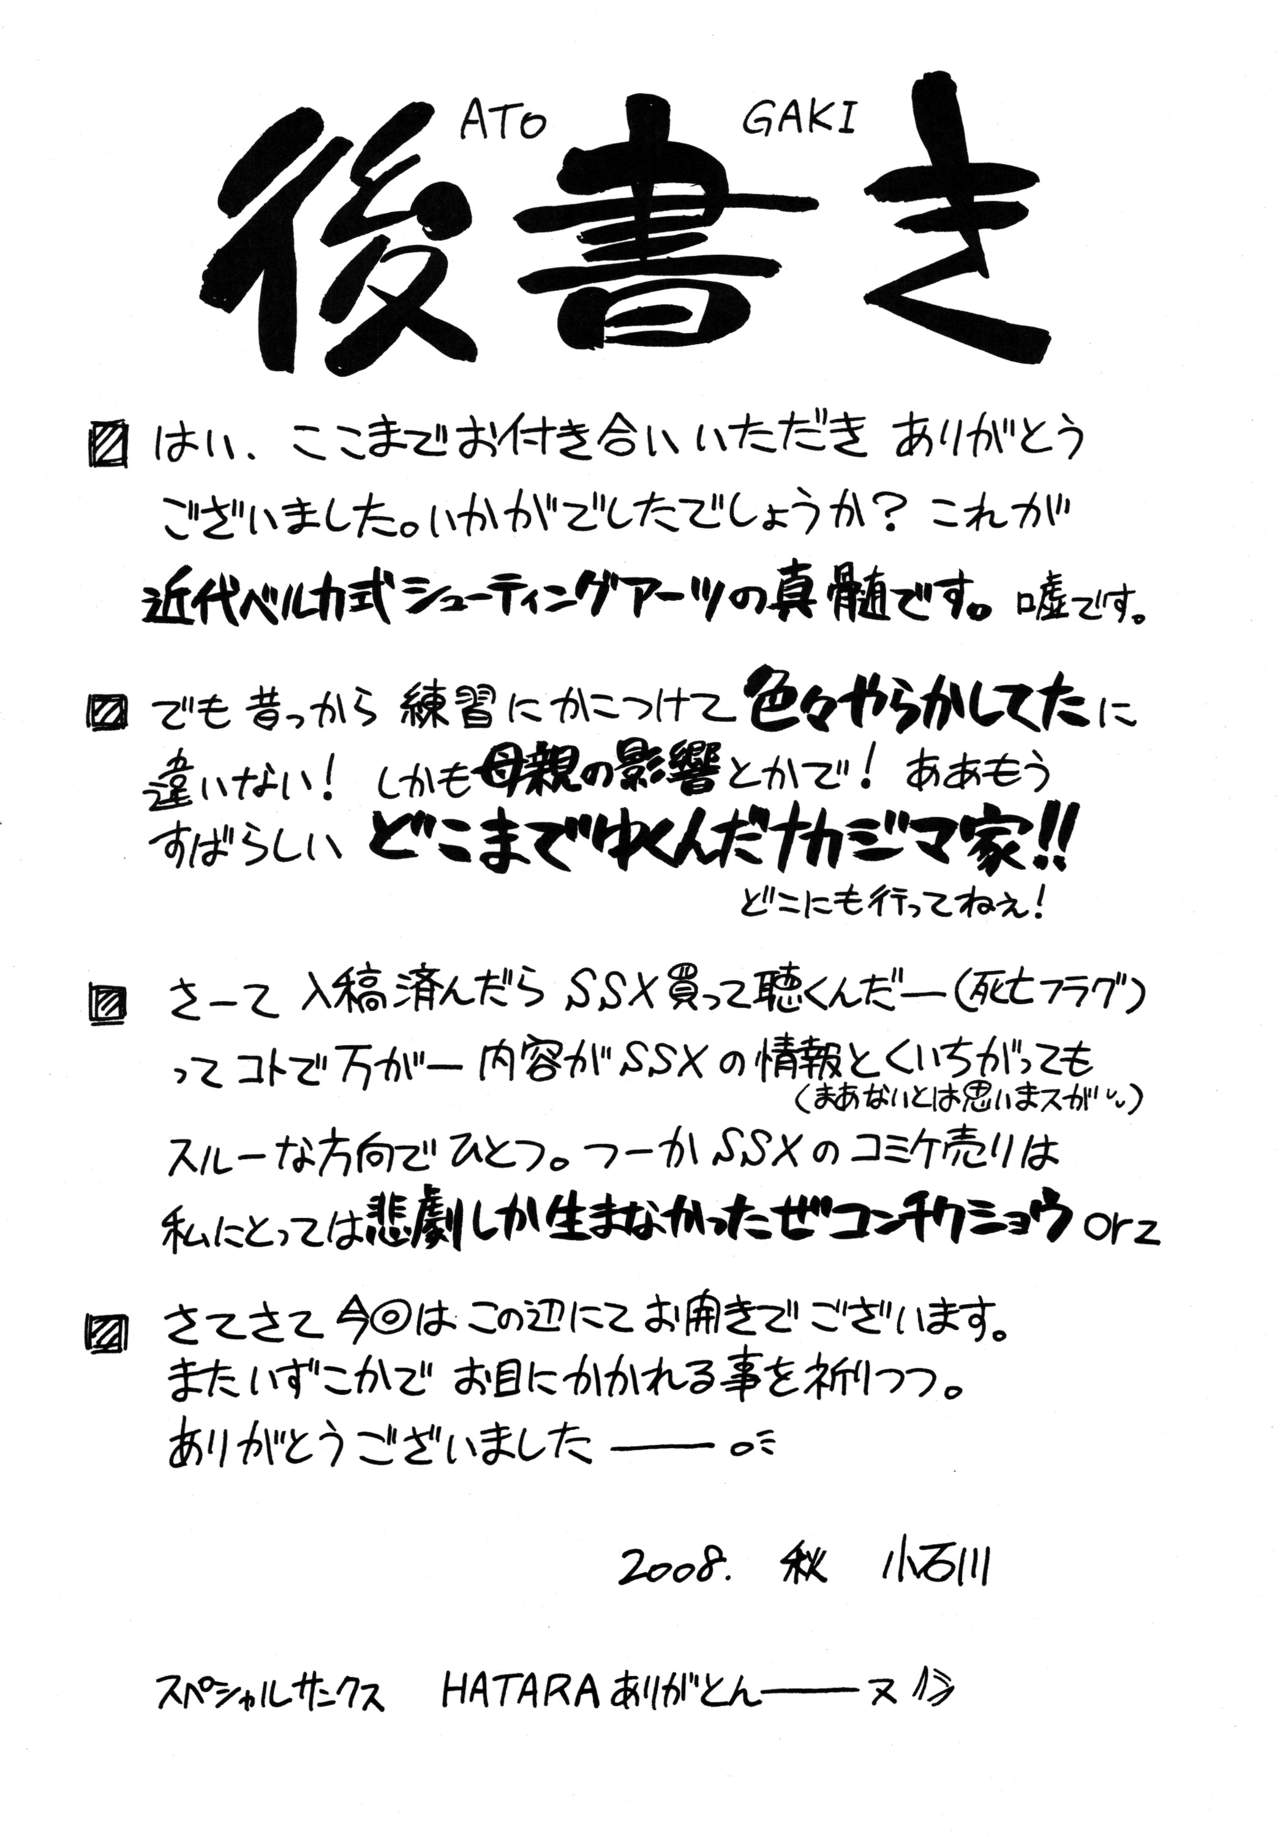 ATO GAKI
後書き
はい、ここまでお付き合いいただき ありがとう
ございました。いかがでしたでしょうか？これが
近代ベルカ式シューティングアーツの真髄です。嘘です。
でも昔っから練習にかこつけて色々やらかしてたに
違いない！しかも母親の影響とかで！ああもう
すばらしい どこまでゆくんだナカジマ家!!
どこにも行ってねえ！
さーて 入稿済んだら SSX買って聴くんだー(死亡フラグ)
ってコトで万が一内容がSSXの情報とくいちがっても
(まあないとは思いまスが)
スルーな方向でひとつ。つーかSSXのコミケ売りは
私にとっては悲劇しか生まなかったぜコンチクショウ orz
さてさて今回はこの辺にてお開きでございます。
またいずこかで お目にかかれる事を祈りつつ。
ありがとうございました――o
2008. 秋 小石川
スペシャルサンクス HATARAありがとん――ヌ